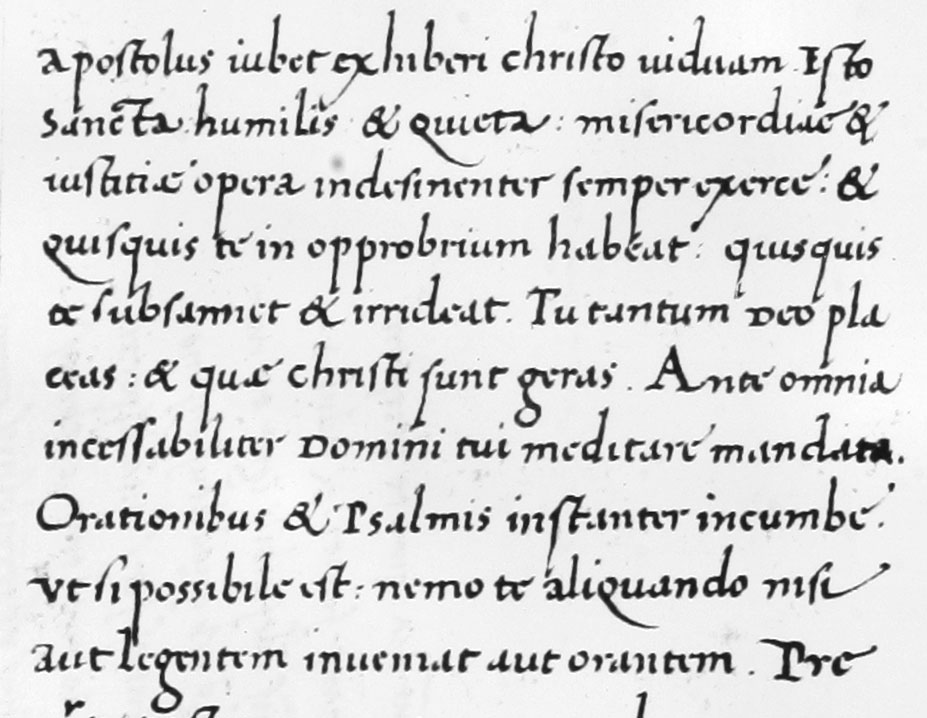 apostolus iubet exhiberi christo uiduam. Esto
Sancta humilis & quieta: misericordiae &
iustitiæ opera indesinenter semper exerce: &
quisquis te in opprobrium habeat: quisquis
te subsannet & irrideat. Tu tantum deo pla
ceas: & quæ christi sunt geras. Ante omnia
incessabiliter Domini tui meditare mandata.
Orationibus & Psalmis instanter incumbe.
vt si possibile est: nemo te aliquando nisi
aut legentem inueniat aut orantem. Pre